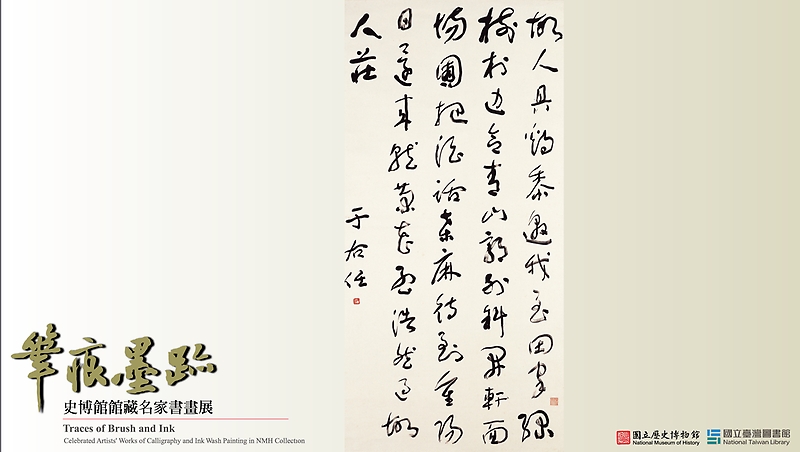 故人具鷄黍邀我至田家綠
樹村边合青山郭外斜開軒面
場圃把酒話桑麻待到重陽
日還來就菊花孟浩然過故
人莊
于右任
筆痕墨跡
史博館館藏名家書畫展
Traces of Brush and Ink
Celebrated Artists' Works of Calligraphy and Ink Wash Painting in NMH Collection
國立歷史博物館
National Museum of History
國立臺灣圖書館
National Taiwan Library